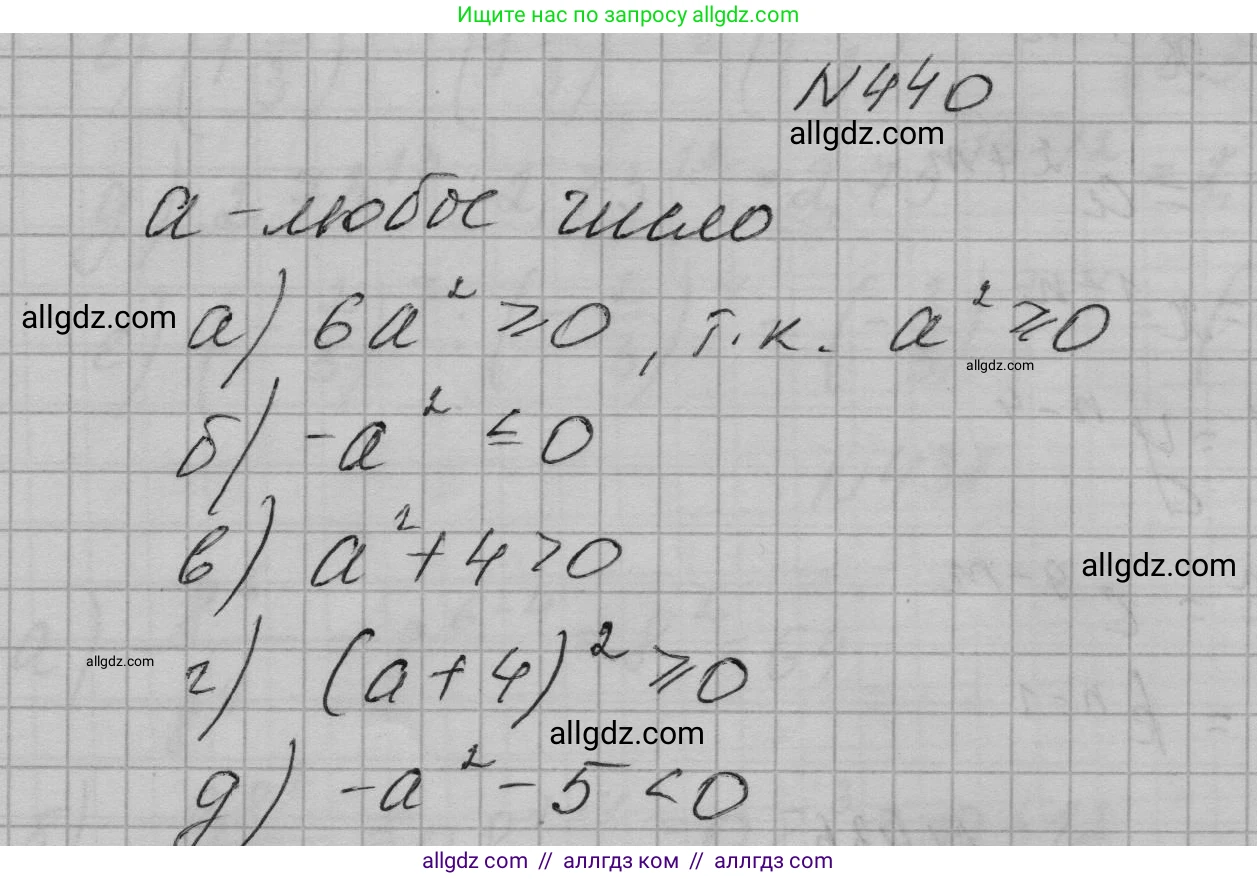 Ищите нас по запросу allgdz.com
N440
allgdz.com
a - любое число
allgdz.com
а) 6a² ⩾ 0, т.к. a² ⩾ 0
allgdz.com
б) -a² ≤ 0
в) a² + 4 > 0
allgdz.com
г) (a + 4)² ⩾ 0
allgdz.com
allgdz.com
д) -a² - 5 < 0
allgdz com // аллгдз ком // аллгдз com